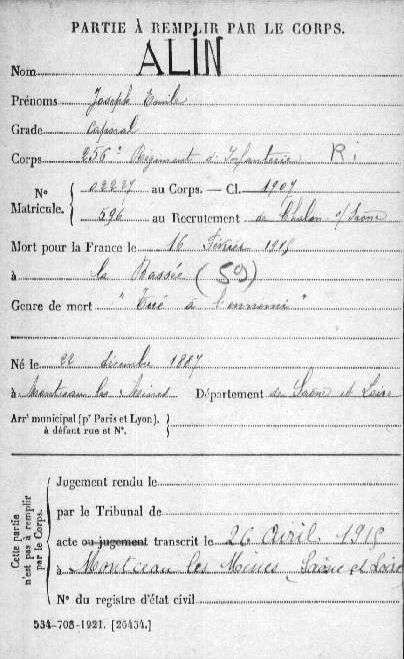 PARTIE À REMPLIR PAR LE CORPS.
Nom ALIN
Prénoms Joseph Emile
Grade Caporal
Corps 256e Régiment d'Infanterie R.I
N° Matricule. { 02227 au Corps. — Cl. 1907
596 au Recrutement de Chalon s/Saône
Mort pour la France le 16 Février 1915
à la Bassée (59)
Genre de mort "Tué à l'ennemi"
Né le 22 décembre 1887
à Montceau les Mines Département de Saône et Loire
Arrt municipal (pr Paris et Lyon), à défaut rue et N°.
Cette partie n'est pas à remplir par le Corps.
Jugement rendu le
par le Tribunal de
acte ou jugement transcrit le 26 Avril 1915
à Montceau les Mines Saône et Loire
N° du registre d'état civil
534-708-1921. [26434.]